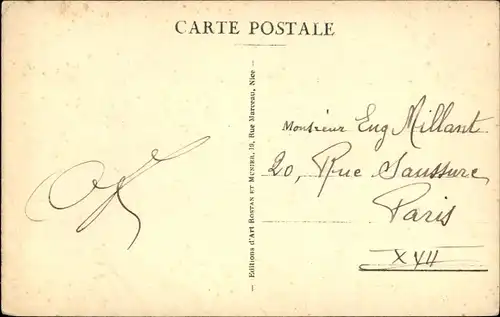 CARTE POSTALE
Editions d'Art ROSTAN ET MUNIER, 10, Rue Marceau, Nice
Monsieur Eug Millant
20, Rue Saussure
Paris
XVII